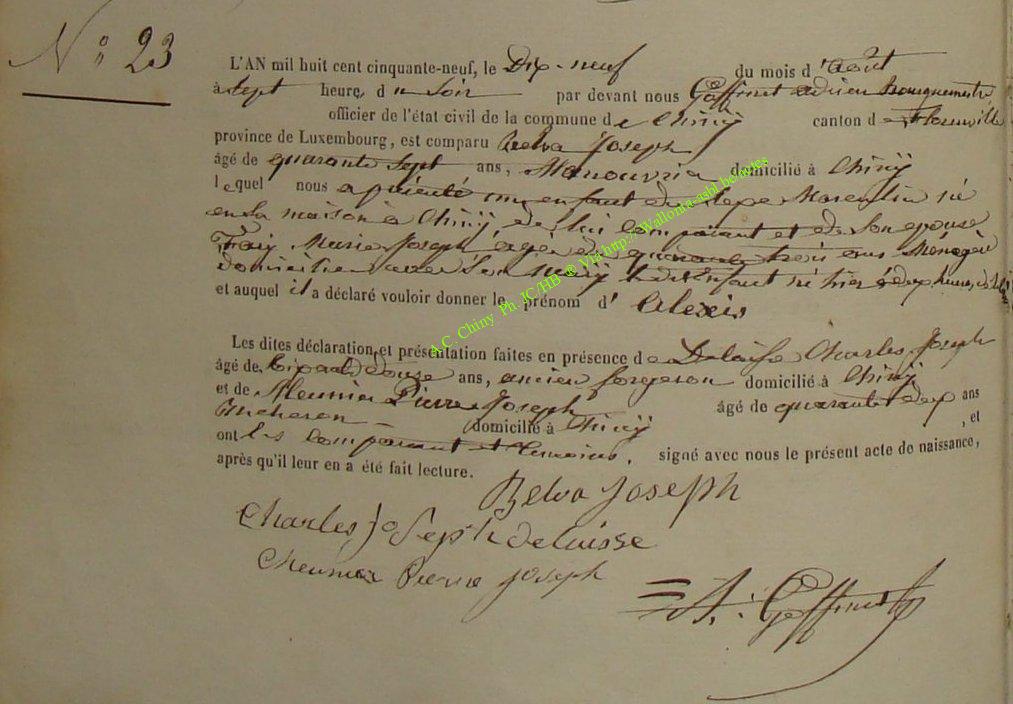 N° 23
L'AN mil huit cent cinquante-neuf, le Dix-neuf du mois d'août
à sept heure, du soir par devant nous Goffinet adrien Bourguemestre,
officier de l'état civil de la commune de Chiny canton de Florenville
province de Luxembourg, est comparu Belva Joseph
âgé de quarante sept ans, Manouvrier domicilié à Chiny
lequel nous a présenté un enfant du sexe Masculin né
en sa maison à Chiny, de lui comparant et de son épouse
Marie Joseph, agée de quarante trois ans Menagère
domiciliée avec son Mary le dit Enfant né hier à deux heures
et auquel il a déclaré vouloir donner le prénom d' Alexis
Les dites déclaration et présentation faites en présence de Delaisse Charles Joseph
âgé de ans, ancien forgeron domicilié à Chiny
et de Meunier Pierre Joseph âgé de quarante deux ans
Bucheron domicilié à Chiny, et
ont les comparant et temoins, signé avec nous le présent acte de naissance,
après qu'il leur en a été fait lecture.
Belva Joseph
Charles Joseph delaisse
Meunier Pierre Joseph
A. Goffinet
A.C. Chiny Ph JC/HB ® Via http://Wallonia-asbl.be/actes